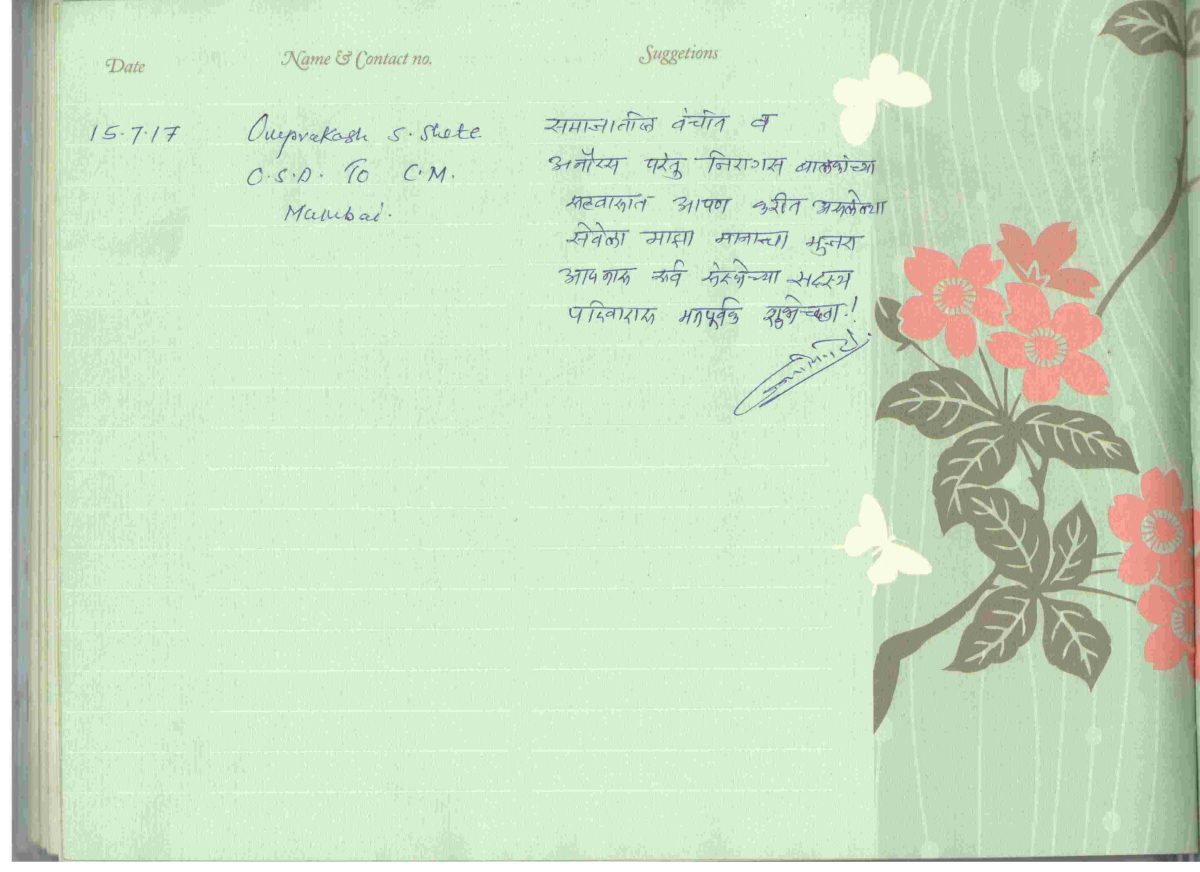 Date Name & Contact no. Suggetions
15.7.17 Omprakash S. Shete समाजातील वंचीत व
O.S.D. To C.M. परंतु निरागस बालकांच्या
Mumbai. सहवासात आपण करीत असलेल्या
सेवेला माझा मानाचा मुजरा
आपणास सर्व संस्थेच्या सदस्य
परिवारास मनपूर्वक शुभेच्छा!